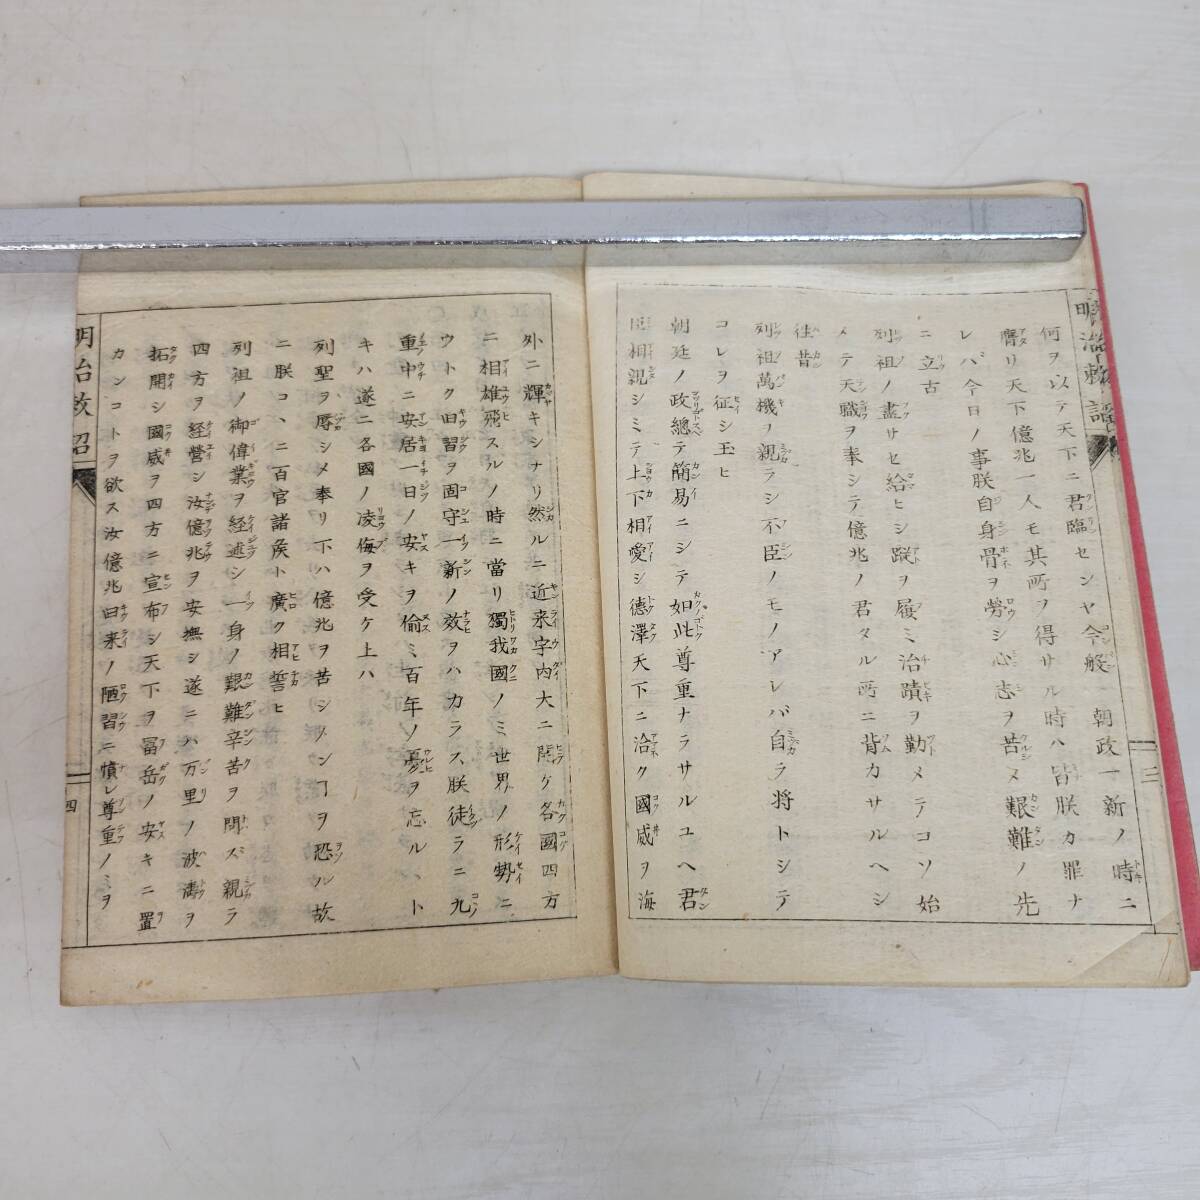 明治敕詔
三
何ヲ以テ天下ニ君臨センヤ今般 朝政一新ノ時ニ
膺リ天下億兆一人モ其所ヲ得サル時ハ皆朕カ罪ナ
レバ今日ノ事朕自身骨ヲ勞シ心志ヲ苦メ艱難ノ先
ニ立古
列祖ノ盡サセ給ヒシ蹤ヲ履ミ治蹟ヲ勤メテコソ始
メテ天職ヲ奉シテ億兆ノ君タル所ニ背カサルヘシ
往昔
列祖萬機ヲ親ラシ不臣ノモノアレバ自ラ将トシテ
コレヲ征シ玉ヒ
朝廷ノ政總テ簡易ニシテ如此尊重ナラサルユヘ君
臣相親シミテ上下相愛シ德澤天下ニ洽ク國威ヲ海
外ニ輝キシナリ然ルニ近来宇内大ニ開ケ各國四方
ニ相雄飛スルノ時ニ當リ獨我國ノミ世界ノ形勢ニ
ウトク旧習ヲ固守一新ノ效ヲハカラス朕徒ラニ九
重中ニ安居一日ノ安キヲ偷ミ百年ノ憂ヲ忘ルヽト
キハ遂ニ各國ノ凌侮ヲ受ケ上ハ
列聖ヲ辱シメ奉リ下ハ億兆ヲ苦シメンヿヲ恐ル故
ニ朕コヽニ百官諸矦ト廣ク相誓ヒ
列祖ノ御偉業ヲ経述シ一身ノ艱難辛苦ヲ問ズ親ラ
四方ヲ経營シ汝億兆ヲ安撫シ遂ニハ万里ノ波濤ヲ
拓開シ國威ヲ四方ニ宣布シ天下ヲ冨岳ノ安キニ置
カンコトヲ欲ス汝億兆旧来ノ陋習ニ慣レ尊重ノミヲ
明治敕詔
四